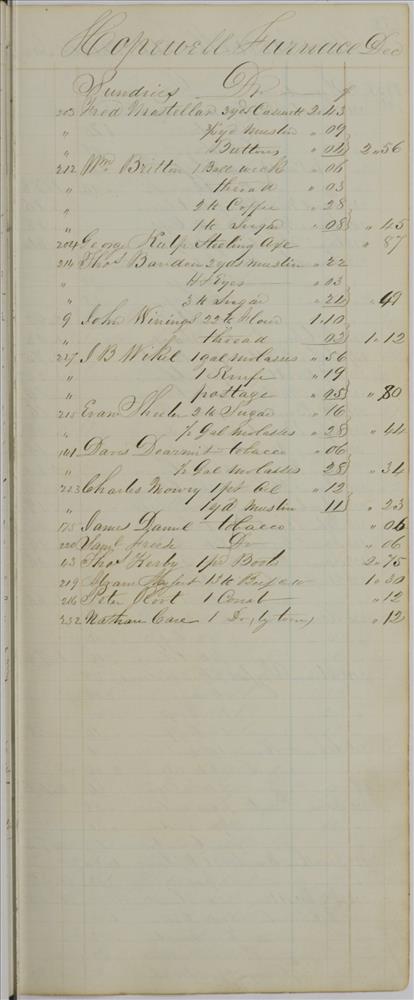 Hopewell Furnace Dec
Sundries Dr $
203 Fred Mostellar 3 yds Casinett 2.43
" ½ yd Muslin " 09
" Buttons " 04 2.56
212 Wm Britton 1 Ball wick " 06
" thread " 03
" 2 lb Coffee " 28
" 1 lb Sugar " 08 " 45
204 George Kulp Axe " 87
214 Thos Bandon 2 yds muslin " 22
" H & Eyes " 03
" 3 lb Sugar " 24 " 49
9 John Winings 22 lb Flour 1.10
" thread 02 1.12
227 J B Wikel 1 gal molasses " 56
" 1 Knife " 19
" postage " 05 " 80
215 Evan 2 lb Sugar " 16
" ½ Gal Molasses " 28 " 44
141 Davis Dearmit tobacco " 06
" ½ Gal molasses 28 " 34
223 Charles Mowry 1 pt Oil " 12
" 1 yd muslin 11 " 23
175 James Daniel tobacco " 06
220 Saml Do " 06
43 Thos Kerby 1 pr Boots 2.75
219 Hiram 13 lb 1.30
216 Peter 1 " 12
232 Nathan Care 1 Do, " 12